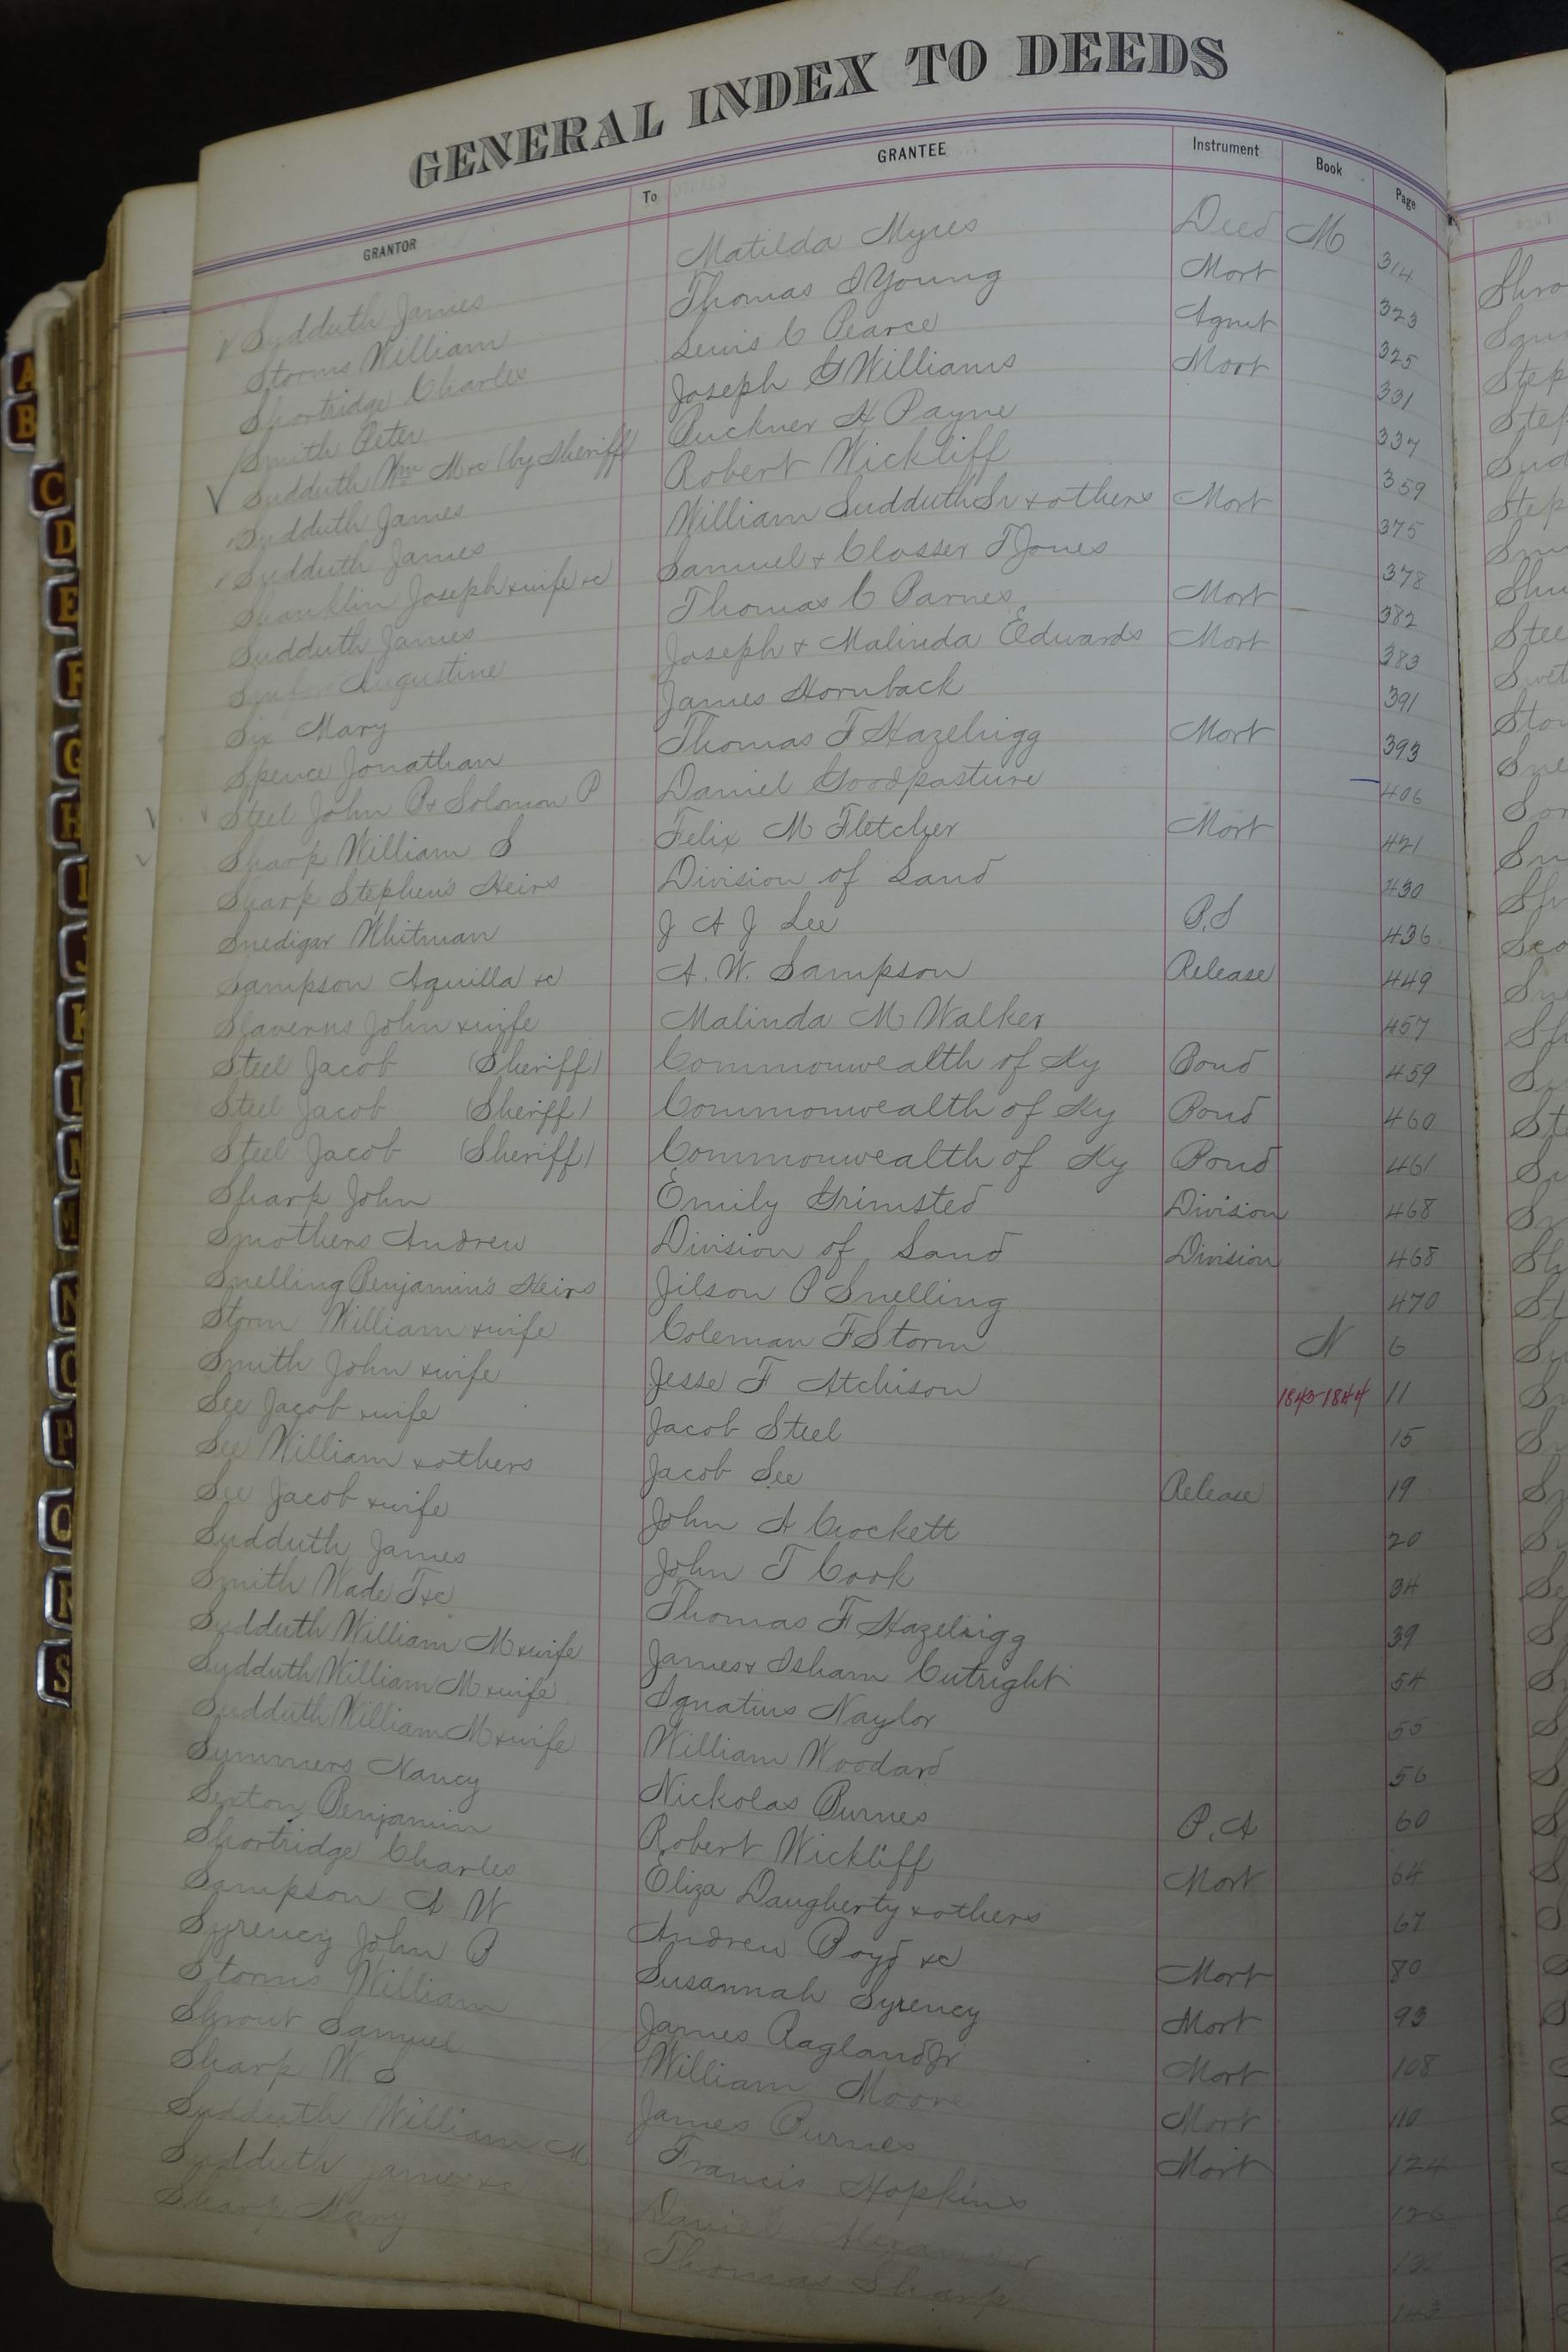 GENERAL INDEX TO DEEDS
GRANTOR To GRANTEE Instrument Book Page
Sudduth James Matilda Myres Deed M 314
Storms William Thomas I Young Mort 323
Shortridge Charles Lewis C Pearce Agmt 325
Smith Peter Joseph G Williams Mort 331
Sudduth Wm M &c (by Sheriff) Buckner H Payne 337
Sudduth James Robert Wickliff 359
Sudduth James William Sudduth Sr & others Mort 375
Shanklin Joseph & wife &c Samuel & Closser T Jones 378
Sudduth James Thomas C Barnes Mort 382
Augustine Joseph & Malinda Edwards Mort 383
Six Mary James Hornback 391
Spence Jonathan Thomas F Hazelrigg Mort 393
Steel John P & Solomon P Daniel Goodpasture 406
Sharp William S Felix M Fletcher Mort 421
Sharp Stephen's Heirs Division of Land 430
Snedigar Whitman J A J Lee P.S 436
Sampson Aquilla &c A. W. Sampson Release 449
Slavens John & wife Malinda M Walker 457
Steel Jacob (Sheriff) Commonwealth of Ky Bond 459
Steel Jacob (Sheriff) Commonwealth of Ky Bond 460
Steel Jacob (Sheriff) Commonwealth of Ky Bond 461
Sharp John Emily Grimsted Division 468
Smothers Andrew Division of Land Division 468
Snelling Benjamin's Heirs Jilson P Snelling 470
Storm William & wife Coleman F Storm N 6
Smith John & wife Jesse F Atchison 1843-1844 11
See Jacob & wife Jacob Steel 15
See William & others Jacob See Release 19
See Jacob & wife John A Crockett 20
Sudduth James John T Cook 34
Smith Wade T &c Thomas F Hazelrigg 39
Sudduth William M & wife James & Isham Cutright 54
Sudduth William M & wife Ignatius Naylor 55
Sudduth William M & wife William Woodard 56
Summers Nancy Nickolas Burnes P. A 60
Sexton Benjamin Robert Wickliff Mort 64
Shortridge Charles Eliza Daugherty & others 67
Sampson A W Andrew Boyd &c Mort 80
Syrency John B Susannah Syrency Mort 93
Storms William James Ragland Jr Mort 108
Shrout Samuel William Moore Mort 110
Sharp W. S James Burnes Mort 124
Sudduth William M Francis Hopkins 126
Sudduth James &c Daniel Alexander 132
Sharp Mary Thomas Sharp 143